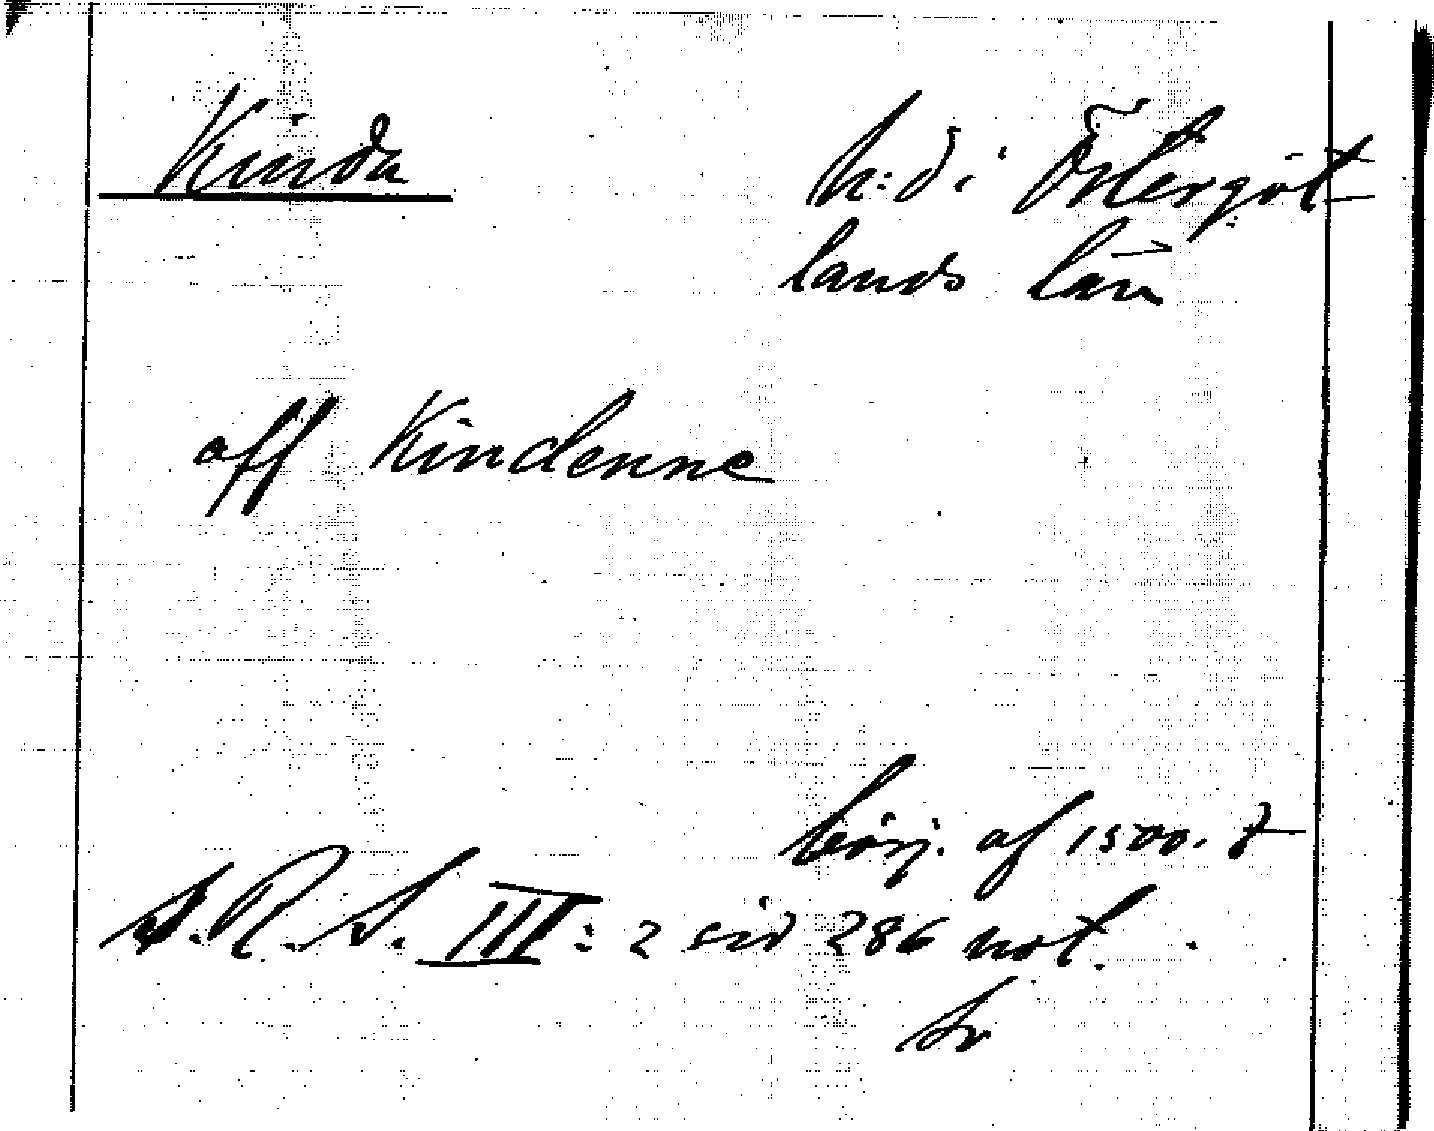 Kinda h:d i Östergöt-
lands län
aff Kindenne
börj. af 1500. t
S. R. S. III: 2 sid 286 not.
Sv